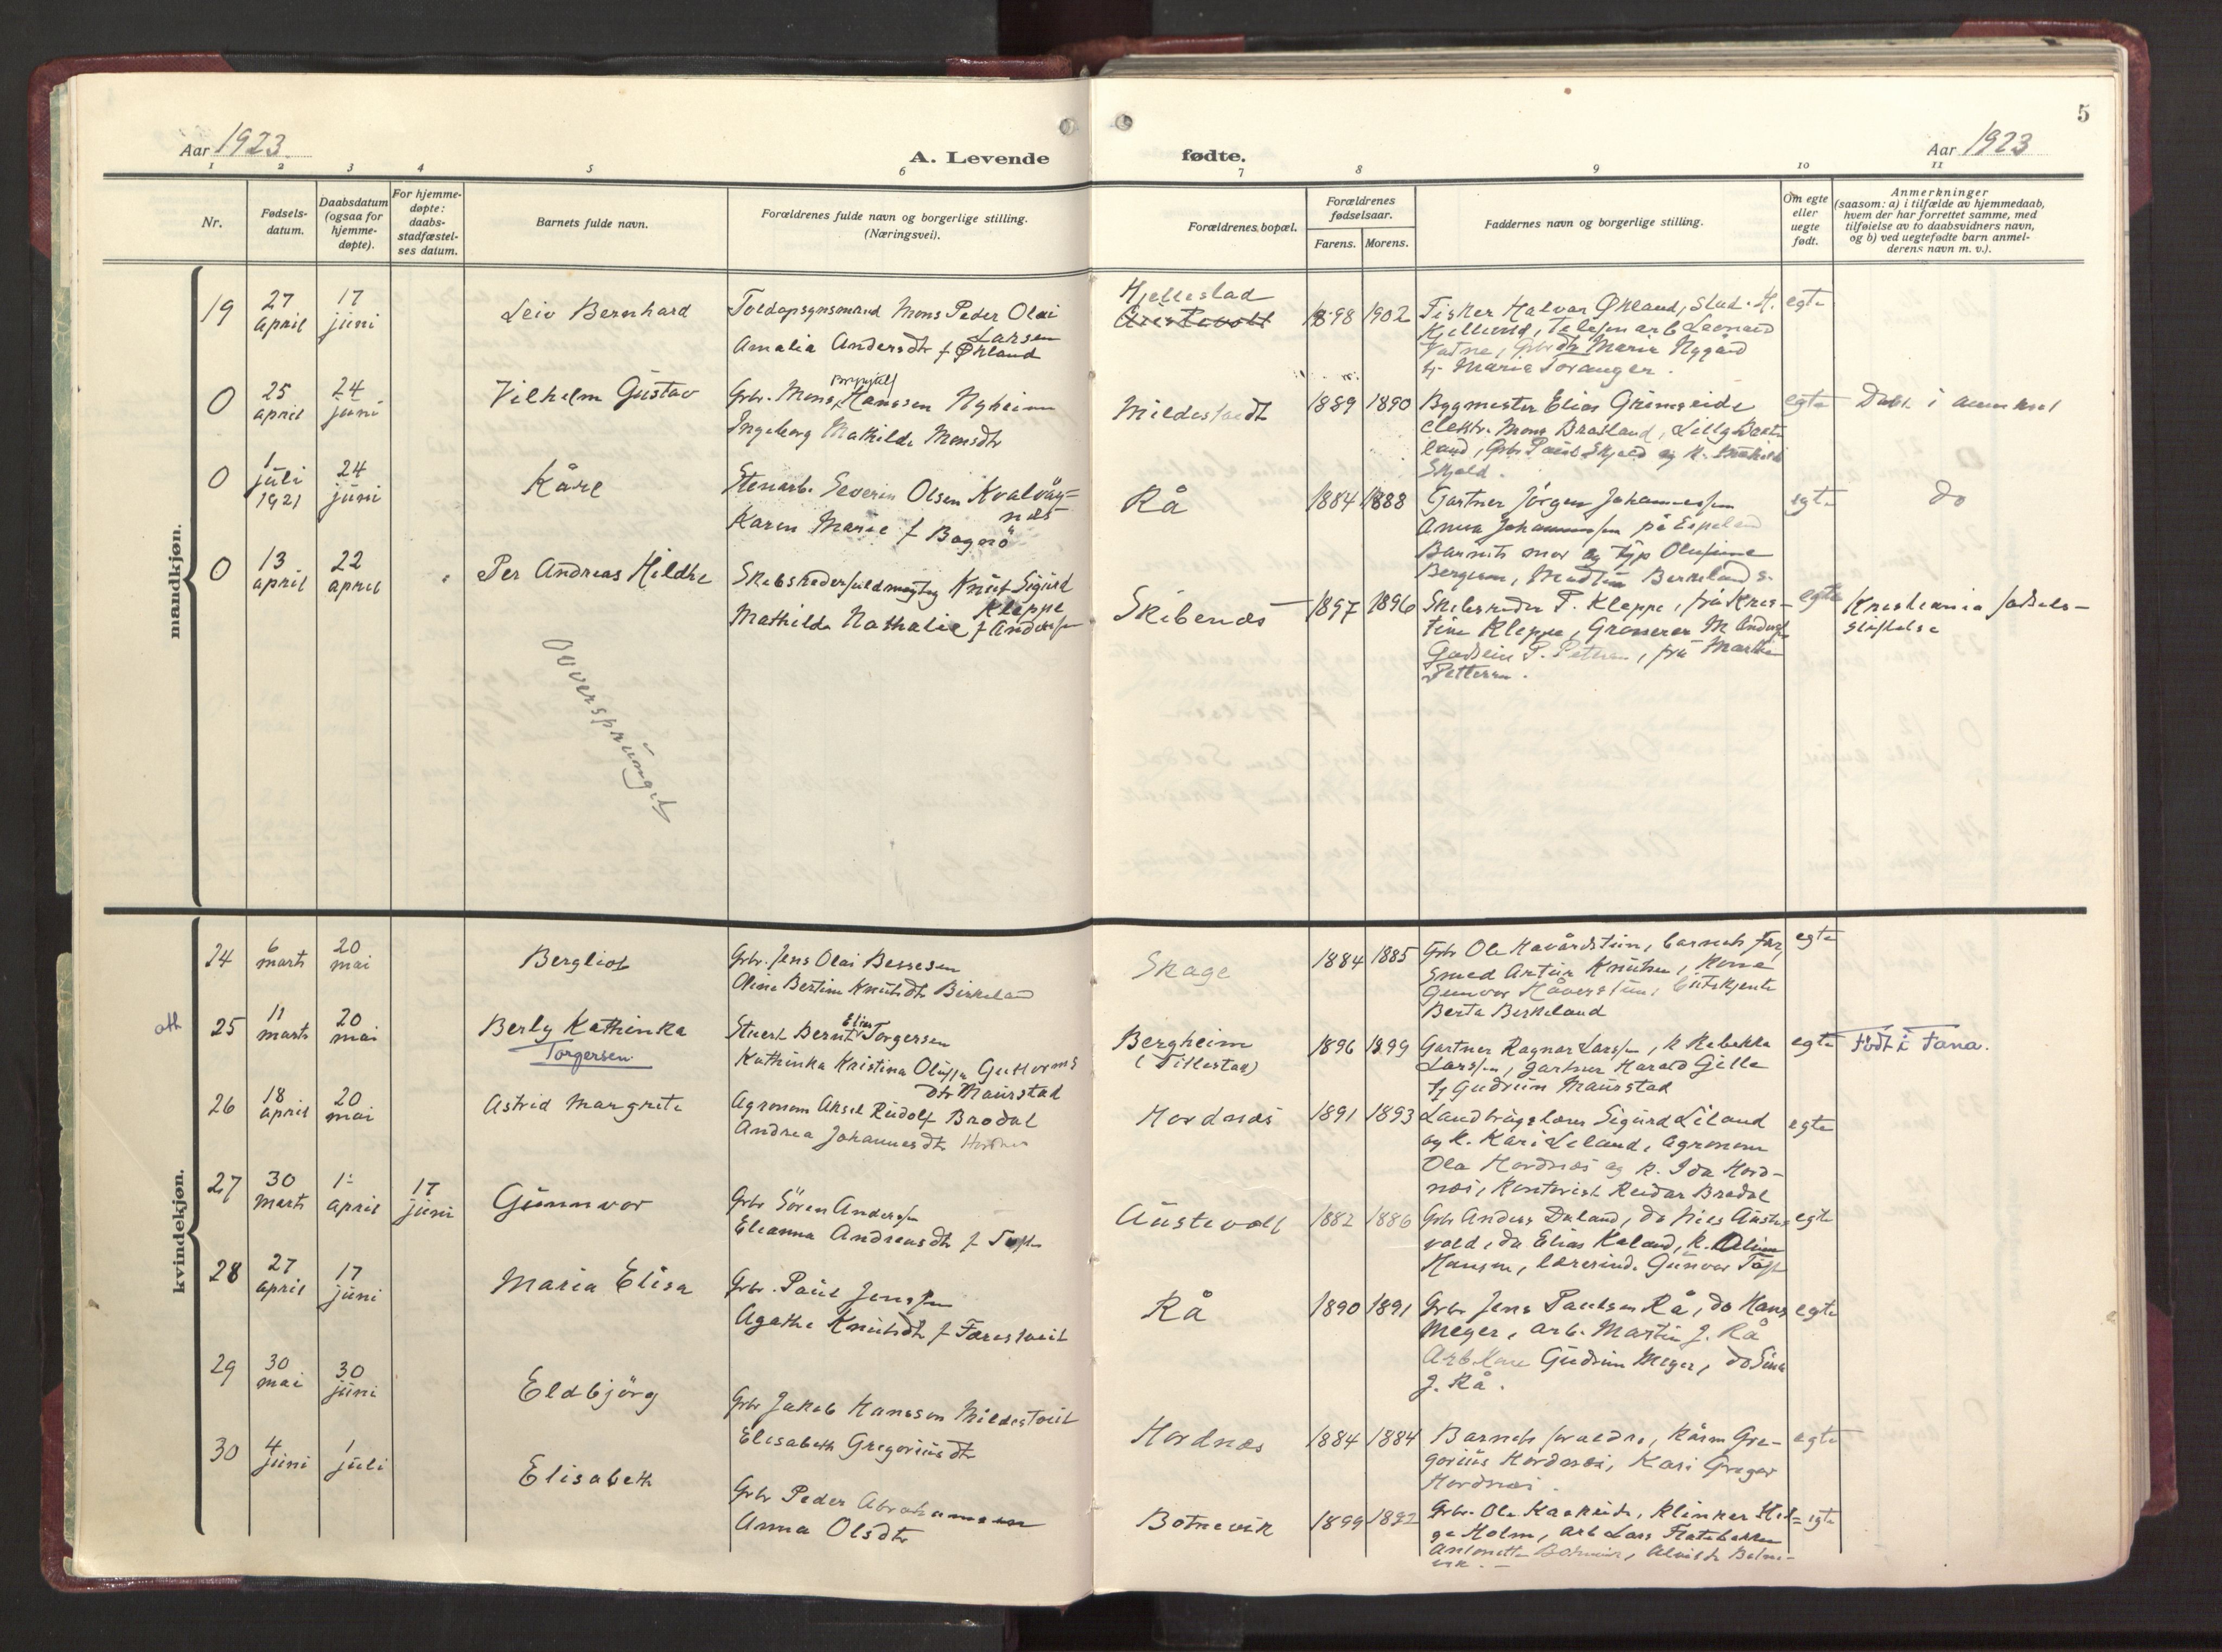 5
Aar 1923
A. Levende
fødte.
Aar 1923
1 2 3 4 5 6 7 8 9 10 11
Nr.
Fødsels-
datum.
Daabsdatum
(ogsaa for
hjemme-
døpte).
For hjemme-
døpte:
daabs-
stadfæstel-
ses datum.
Barnets fulde navn.
Forældrenes fulde navn og borgerlige stilling.
(Næringsvei).
Forældrenes bopæl.
Forældrenes
fødselsaar.
Farens. Morens.
Faddernes navn og borgerlige stilling.
Om egte
eller
uegte
født.
Anmerkninger
(saasom: a) i tilfælde av hjemmedaab,
hvem der har forrettet samme, med
tilføielse av to daabsvidners navn,
og b) ved uegtefødte barn anmel-
derens navn m. v.).
mandkjøn.
19
27
april
17
juni
Leiv Bernhard
Toldopsynsmand Mons Peder Olai
Larsen
Amalia Andersdtr f Økland
Hjellestad
1898 1902
Fisker Halvar Økland, Stud. H.
Kjellevold, Telefonarb Leonard
Vatne, Grbrdtr Marie Nygård
og Marie Soranger.
egte
0
25
april
24
juni
Vilhelm Gustav
Grbr. Mons Hanssen Nyheim
Ingeborg Mathilde Monsdtr
Mildestvedt
1889 1890
Bygmester Elias Grimseide
elektr. Mons Brasland, Lilly
land, Grbr Paul Skjold og k.
Skjold.
egte
Døbt i annekset
0
1
juli
1921
24
juni
Kåre
Stenarb. Severin Olsen Kvalvåg=
næs
Karen Marie f Bagerö
Rå
1884 1888
Gartner Jörgen Johannessen
Anna Johannessen på Espeland
Barnets mor og typ Olufine
Bergesen, Madlin Berkeland s.
egte
do
0
13
april
22
april
Per Andreas Hildke
Skibsrederfuldmegtig Knut Sigurd
Kleppe
Mathilde Nathalie f Andersen
Skibenæs
1897 1896
Skibsreder P. Kleppe, fru Kris-
tine Kleppe, Grosserer M Andersen
Godseier P. Pettersen, fru Marthe
Pettersen.
egte
Kristiania fødsels-
stiftelse
Oversprunget
kvindekjøn.
24
6
marts
20
mai
Bergliot
Grbr. Jens Olai Bessesen
Olene Bertine Knutsdtr Birkeland
Skage
1884 1885
Grbr Ole Havårdstun, barnets far,
Smed Artur Knutsen, Kone
Gunvor Håvarstun,
Berta Berkeland
egte
att
25
11
marts
20
mai
Berly Kathinka
Torgersen
Elias
Stuert Bernt Torgersen
Kathinka Kristina Oluffa Guttorms
dtr Maurstad
Bergheim
(Tillestad)
1896 1899
Gartner Ragnar Larssen, k Rebekka
Larssen, gartner Harald Gille
og Gudrun Maurstad
egte
Født i Fana.
26
18
april
20
mai
Astrid Margrete
Agronom Aksel Rudolf Brodal
Andrea Johannesdtr Hordnes
Hordnæs
1891 1893
Landbrugslærer Sigurd Liland
og k. Kari Leland, agronom
Ola Hordnæs og k. Ida Hord-
næs, Kontorist Reidar Brodal
egte
27
30
marts
1ste
april
17
juni
Gunnvor
Grbr Sören Anderssen
Elianna Andreasdtr f Toft
Austevoll
1882 1886
Grbr Anders Daland, do Nils Auste-
vold, do Elias Kaland, k. Oline
Hansen, lærerinde Gunvor Toft
egte
28
27
april
17
juni
Maria Elisa
Grbr. Paul Jenssen
Agathe Knutsdtr f Færestveit
Rå
1890 1891
Grbr Jens Paulsen Rå, do Hans
Meyer, arb. Martin J. Rå
Arb kone Gudrun Meyer, do Sina
J. Rå.
egte
29
30
mai
30
juni
Eldbjörg
Grbr Jakob Hanssen Mildestveit
Elisabeth Gregoriusdtr
Hordnæs
1884 1884
Barnets foreldre, Kåre Gre-
gorius Hordnæs, Kari Gregor
Hordnæs.
egte
30
4
juni
1
juli
Elisabeth
Grbr Peder Abrahamsen
Anna Olsdtr
Botnevik
1899 1892
Grbr. Ole Kaarheide, Klinker Hel=
ge Holm, arb Lars Flatebakken
Antonette Botnevik, Alvilde Botne-
vik.
egte